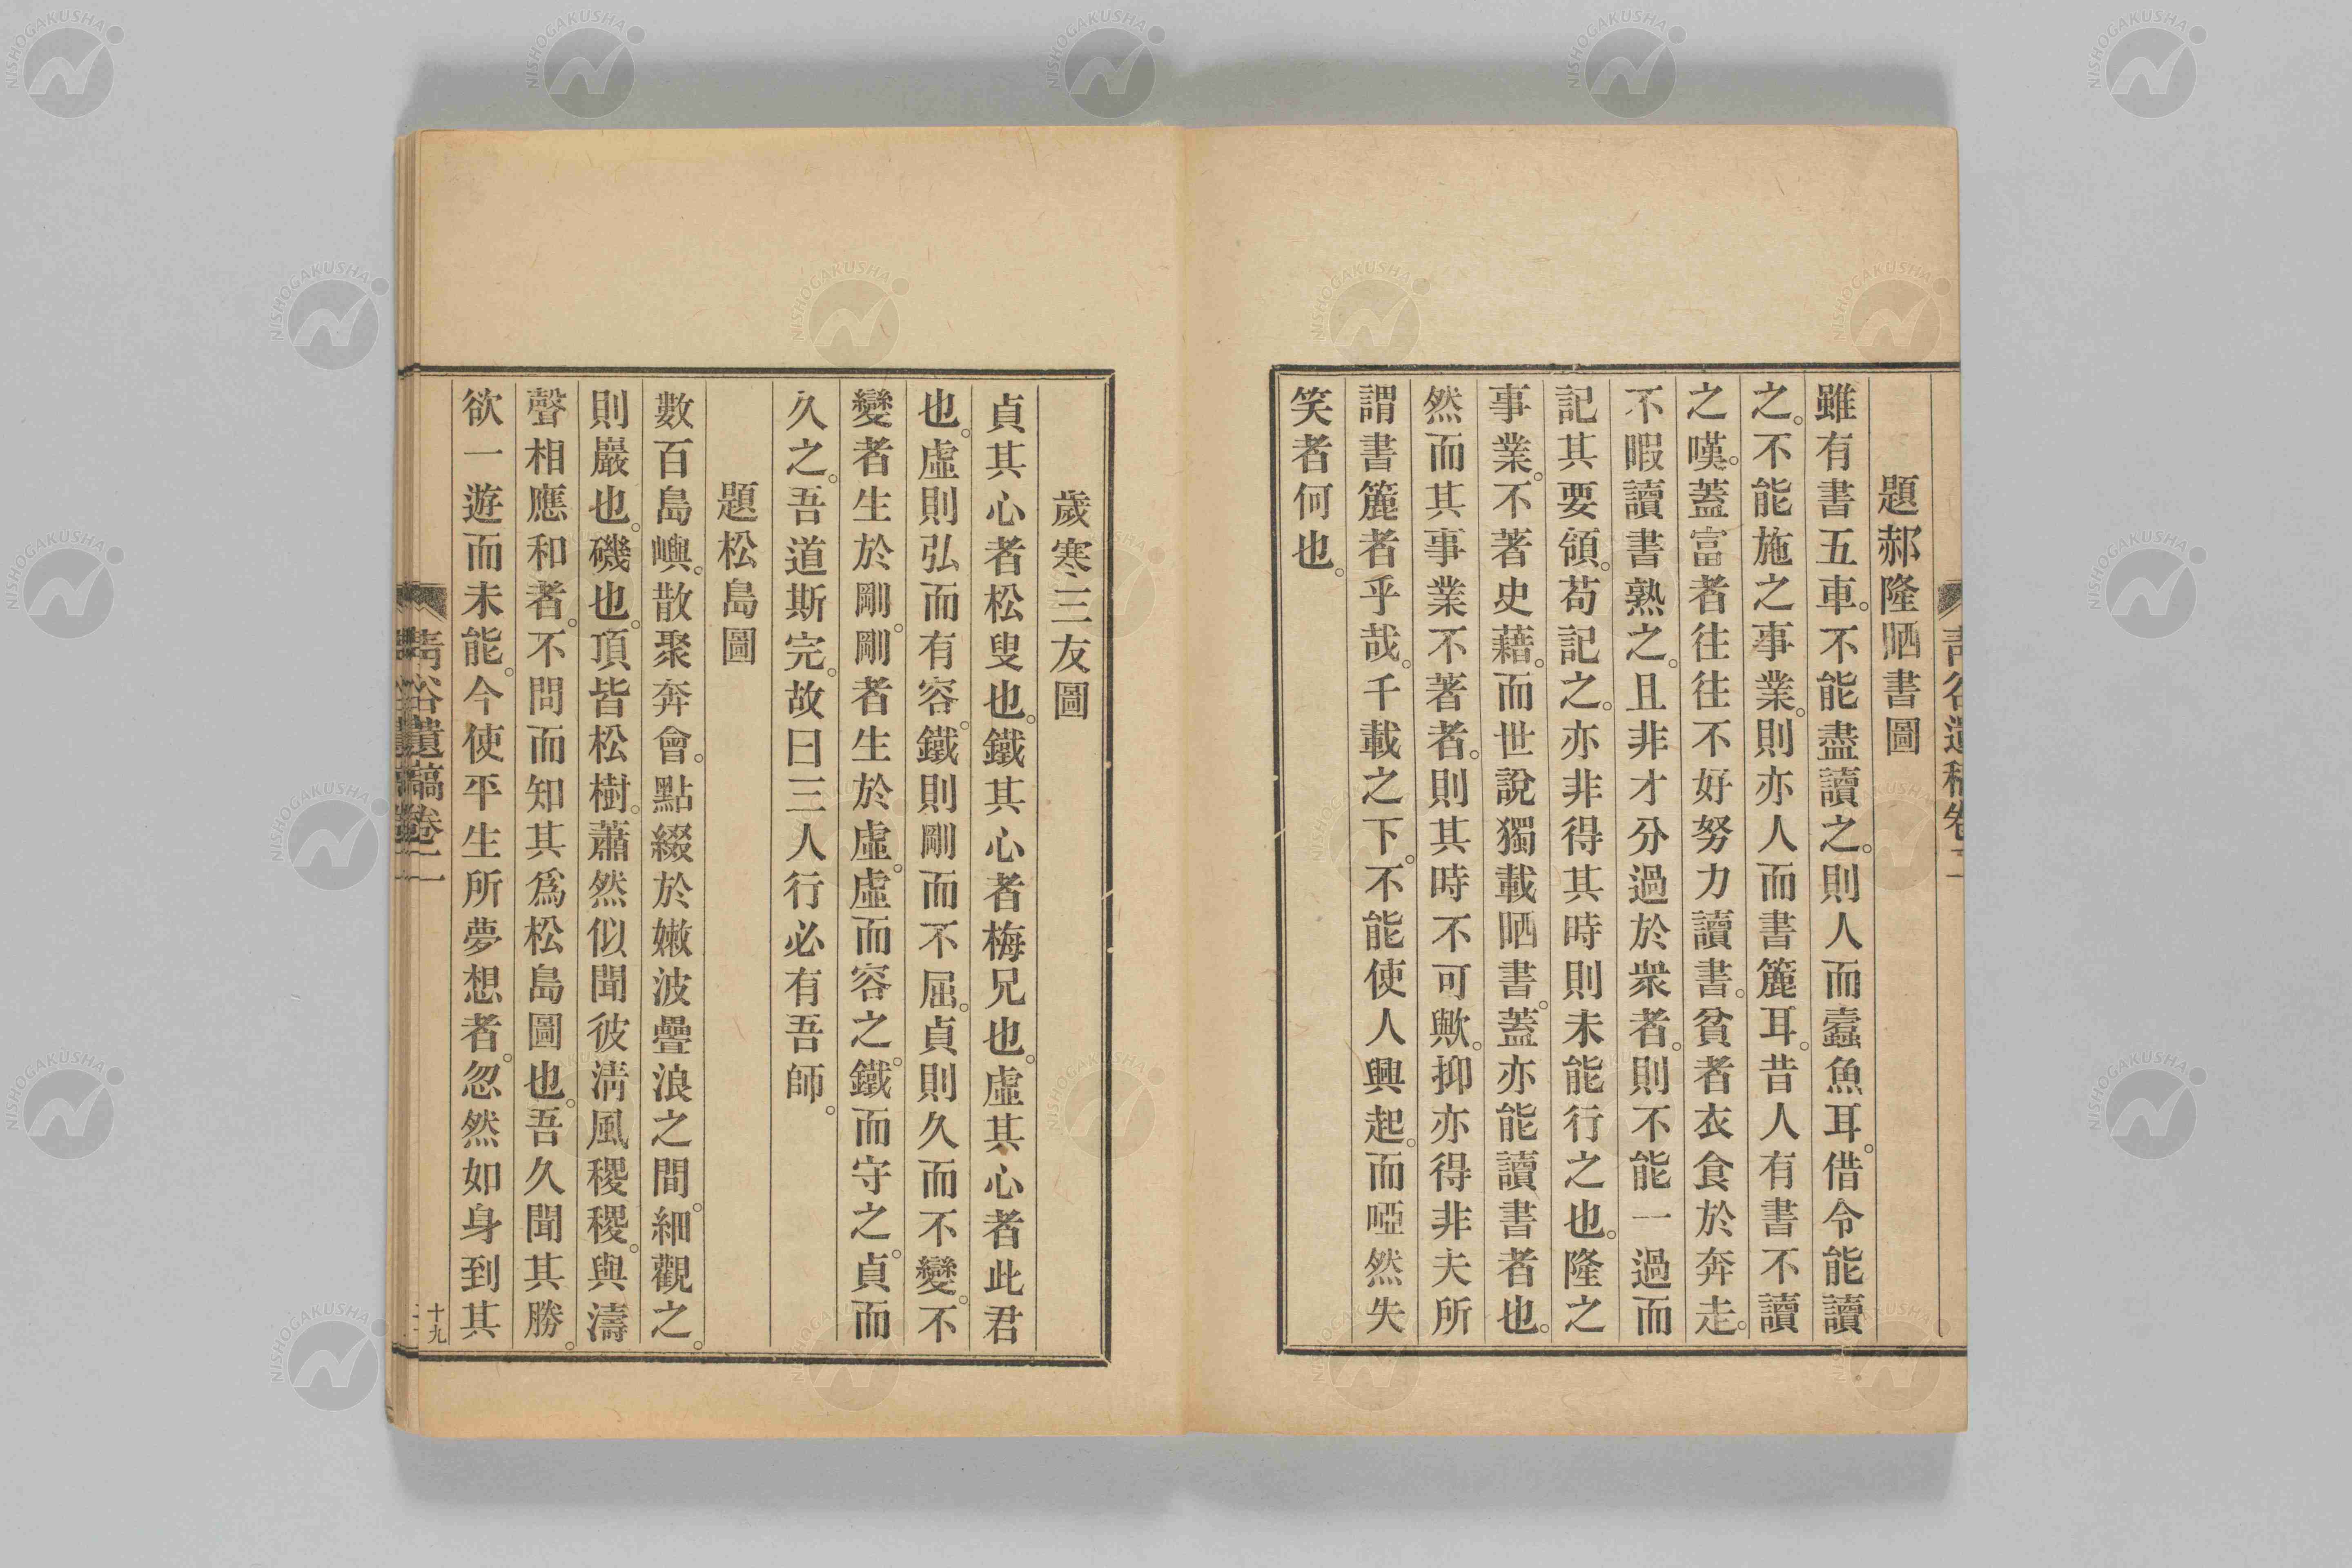 題郝隆晒書圖
雖有書五車。不能盡讀之。則人而蠹魚耳。借令能讀
之。不能施之事業。則亦人而書簏耳。昔人有書不讀
之嘆。蓋富者往往不好努力讀書。貧者衣食於奔走。
不暇讀書熟之。且非才分過於衆者。則不能一過而
記其要領。苟記之。亦非得其時則未能行之也。隆之
事業。不著史藉。而世說獨載晒書。蓋亦能讀書者也。
然而其事業不著者。則其時不可歟。抑亦得非夫所
謂書簏者乎哉。千載之下。不能使人興起。而啞然失
笑者何也。
歲寒三友圖
貞其心者松叟也。鐵其心者梅兄也。虛其心者此君
也。虛則弘而有容。鐵則剛而不屈。貞則久而不變。不
變者生於剛。剛者生於虛。虛而容之。鐵而守之。貞而
久之。吾道斯完。故曰三人行必有吾師。
題松島圖
數百島嶼。散聚奔會。點綴於嫩波疊浪之間。細觀之。
則巖也。磯也。頂皆松樹。蕭然似聞彼淸風稷稷。與濤
聲相應和者。不問而知其爲松島圖也。吾久聞其勝。
欲一遊而未能。今使平生所夢想者。忽然如身到其
十九
NISHOGAKUSHA